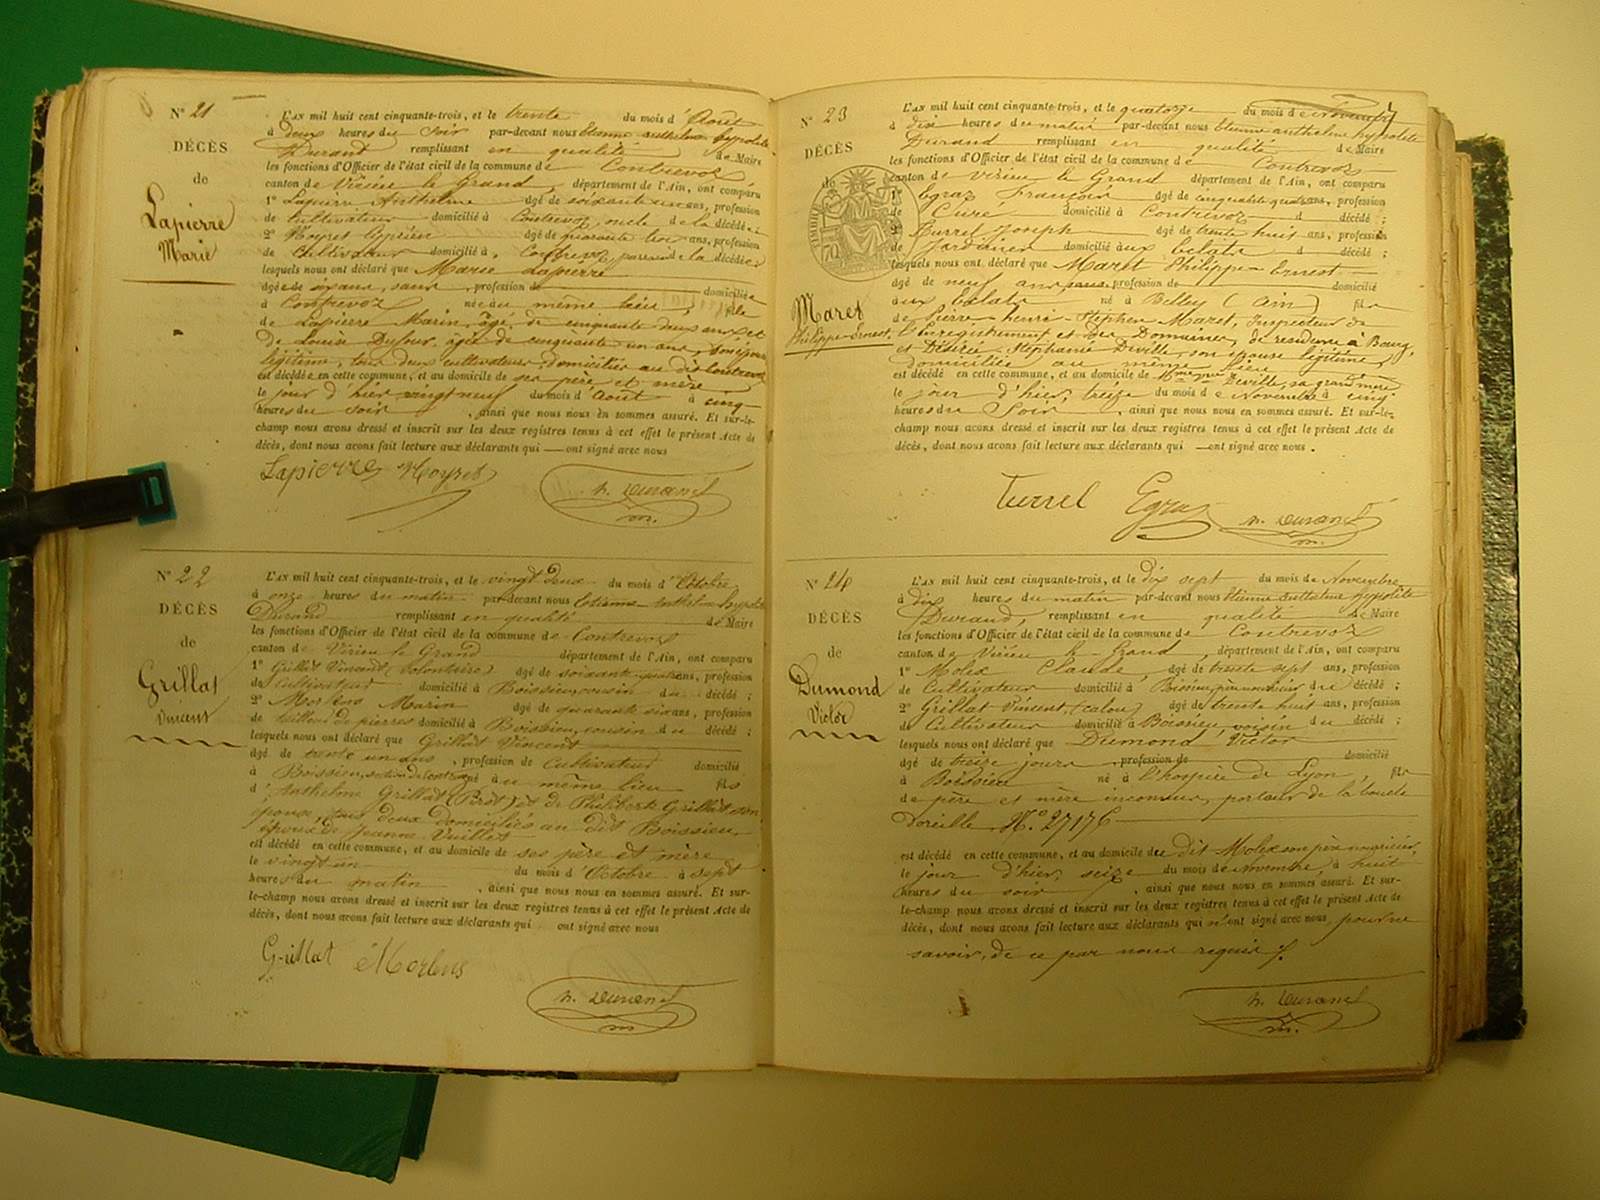 N° 21
DÉCÈS
de
Lapierre
Marie
L'AN mil huit cent cinquante-trois, et le trente du mois d'Août
à deux heures du soir par-devant nous Etienne anthelme hypolite
Durand remplissant en qualité de Maire
les fonctions d'Officier de l'état civil de la commune de Contrevoz
canton de Virieu le Grand, département de l'Ain, ont comparu
1° Lapierre Anthelme âgé de soixante ans, profession
de Cultivateur domicilié à Contrevoz, oncle de la décédée ;
2° Moyret Cyprien âgé de quarante trois ans, profession
de Cultivateur domicilié à Contrevoz, parrain de la décédée ;
lesquels nous ont déclaré que Marie Lapierre
âgée de six ans, sans, profession de domiciliée
à Contrevoz née au même lieu, fille
de Lapierre Marin, âgé de cinquante deux ans et
de Louise Dufour, âgée de cinquante un ans, son épouse
légitime, tous deux cultivateurs, domiciliés au dit Contrevoz
est décédée en cette commune, et au domicile de ses père et mère
le jour d'hier vingt neuf du mois d'Août à cinq
heures du soir, ainsi que nous nous en sommes assuré. Et sur-le-
champ nous avons dressé et inscrit sur les deux registres tenus à cet effet le présent Acte de
décès, dont nous avons fait lecture aux déclarants qui ont signé avec nous
Lapierre Moyret h. Durand
m.
N° 22
DÉCÈS
de
Grillat
Vincent
L'AN mil huit cent cinquante-trois, et le vingt deux du mois d'Octobre
à onze heures du matin par-devant nous Etienne Anthelme hypolite
Durand remplissant en qualité de Maire
les fonctions d'Officier de l'état civil de la commune de Contrevoz
canton de Virieu le Grand département de l'Ain, ont comparu
1° Grillat Vincent (volontaire) âgé de soixante quatre ans, profession
de Cultivateur domicilié à Boissieu, cousin du décédé ;
2° Morlens Marin âgé de quarante six ans, profession
de tailleur de pierres domicilié à Boissieu, cousin du décédé ;
lesquels nous ont déclaré que Grillat Vincent
âgé de trente un ans, profession de Cultivateur domicilié
à Boissieu, section de Contrevoz né au même lieu fils
d'Anthelme Grillat et de Philiberte Grillat son
épouse, tous deux domiciliés au dit Boissieu,
époux de Jeanne Vuillot
est décédé en cette commune, et au domicile de ses père et mère
le vingt un du mois d'Octobre à sept
heures du matin, ainsi que nous nous en sommes assuré. Et sur-
le-champ nous avons dressé et inscrit sur les deux registres tenus à cet effet le présent Acte de
décès, dont nous avons fait lecture aux déclarants qui ont signé avec nous
Grillat Morlens
h. Durand
m.
N° 23
DÉCÈS
de
TIMBRE
Maret
Philippe-Ernest
L'AN mil huit cent cinquante-trois, et le quatorze du mois de novembre
à dix heures du matin par-devant nous Etienne anthelme hypolite
Durand remplissant en qualité de Maire
les fonctions d'Officier de l'état civil de la commune de Contrevoz
canton de virieu le Grand département de l'Ain, ont comparu
1° Egraz François âgé de cinquante quatre ans, profession
de Curé domicilié à Contrevoz d décédé ;
2° Turrel Joseph âgé de trente huit ans, profession
de Jardinier domicilié aux d décédé ;
lesquels nous ont déclaré que Maret Philippe-Ernest
âgé de neuf ans sans profession de domicilié
aux né à Belley (Ain) fils
de Pierre-henri-Stephen Maret, Inspecteur de
l'Enregistrement et des Domaines, de residence à Bourg,
et Désirée Stéphanie Deville, son epouse légitime,
domiciliés au même lieu
est décédé en cette commune, et au domicile de Mme Deville, sa grand'mère
le jour d'hier, treize du mois de Novembre à cinq
heures du Soir, ainsi que nous nous en sommes assuré. Et sur-le-
champ nous avons dressé et inscrit sur les deux registres tenus à cet effet le présent Acte de
décès, dont nous avons fait lecture aux déclarants qui ont signé avec nous.
Turrel Egraz h. Durand
m.
N° 24
DÉCÈS
de
Dumond
Victor
L'AN mil huit cent cinquante-trois, et le dix sept du mois de Novembre
à dix heures du matin par-devant nous Etienne anthelme hypolite
Durand, remplissant en qualité de Maire
les fonctions d'Officier de l'état civil de la commune de Contrevoz
canton de Virieu le Grand, département de l'Ain, ont comparu
1° Molex Claude, âgé de trente sept ans, profession
de Cultivateur domicilié à Boissieu, père nourricier du décédé ;
2° Grillat Vincent âgé de trente huit ans, profession
de Cultivateur domicilié à Boissieu, voisin du décédé ;
lesquels nous ont déclaré que Dumond Victor
âgé de treize jours, profession de domicilié
à Boissieu né à l'hospice de Lyon, fils
de père et mère inconnus, porteur de la boucle
d'oreille N° 27176
est décédé en cette commune, et au domicile du dit Molex son père nourricier,
le jour d'hier, seize du mois de novembre, à huit
heures du soir, ainsi que nous nous en sommes assuré. Et sur-
le-champ nous avons dressé et inscrit sur les deux registres tenus à cet effet le présent Acte de
décès, dont nous avons fait lecture aux déclarants qui n'ont signé avec nous, pour ne
savoir, de ce par nous requis.
h. Durand
m.